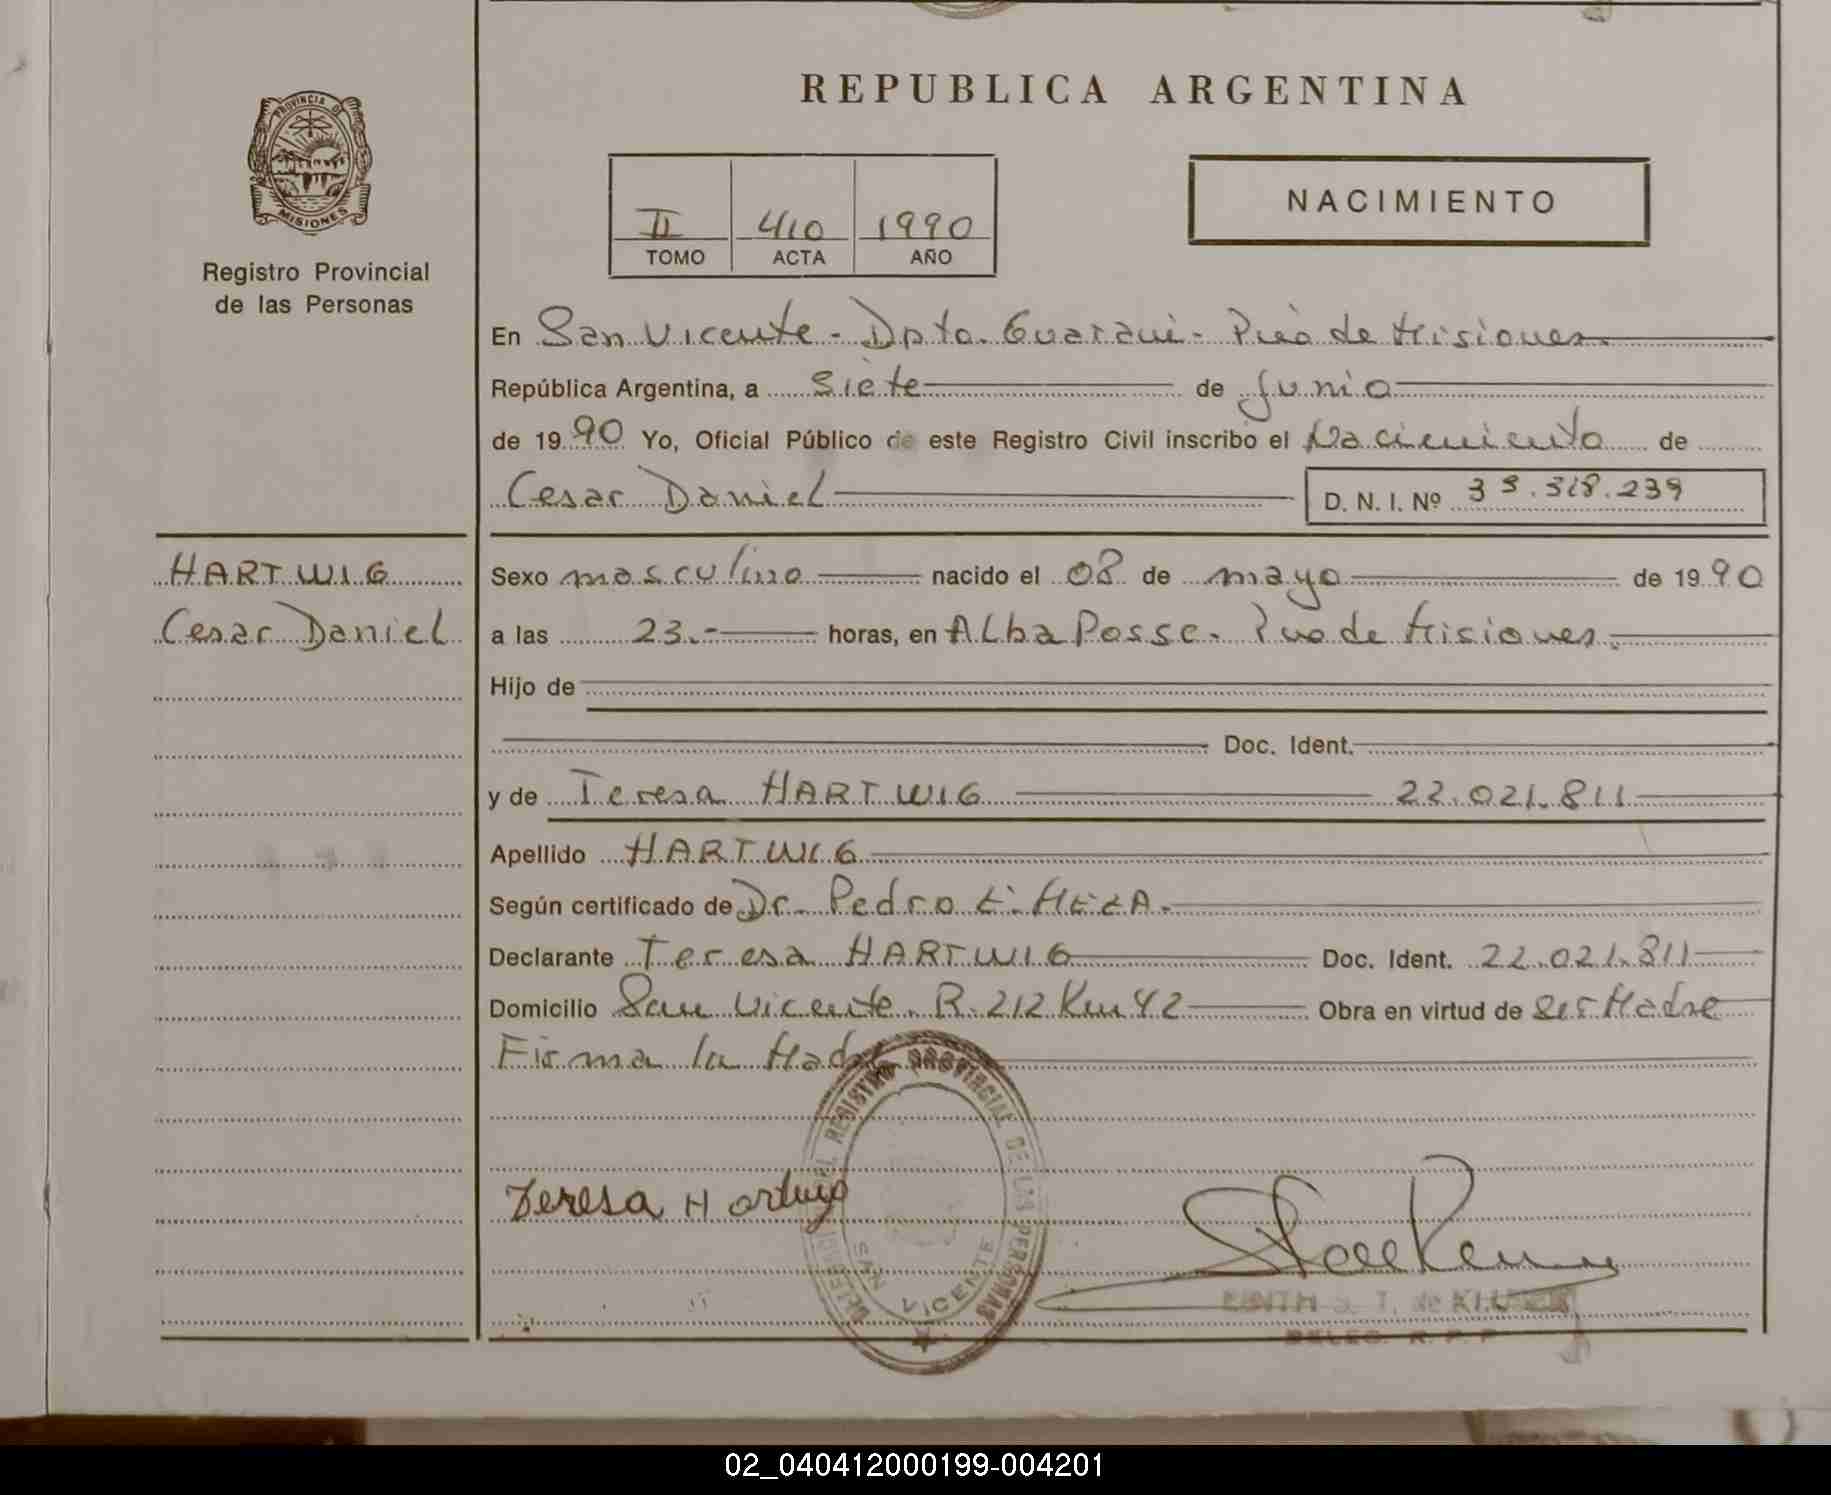 REPUBLICA ARGENTINA
PROVINCIA DE
MISIONES
Registro Provincial
de las Personas
NACIMIENTO
II 410 1990
TOMO ACTA AÑO
En San Vicente - Dpto. Guaraní - Pcia de Misiones.
República Argentina, a siete de Junio
de 1990 Yo, Oficial Público de este Registro Civil inscribo el Nacimiento de
Cesar Daniel D. N. I. Nº 35.328.239
HARTWIG
Cesar Daniel
Sexo masculino nacido el 08 de mayo de 1990
a las 23.- horas, en Alba Posse. Pvo de Misiones.
Hijo de
Doc. Ident.
y de Teresa HARTWIG 22.021.811
Apellido HARTWIG
Según certificado de Dr. Pedro E.
Declarante Teresa HARTWIG Doc. Ident. 22.021.811
Domicilio San Vicente. R. 212 Km 42 Obra en virtud de ser Madre
Firma la Madre
Teresa Hartwig
DELEGACION DEL REGISTRO PROVINCIAL DE LAS PERSONAS
SAN VICENTE
T. de
DELEG. R. P. P
02_040412000199-004201